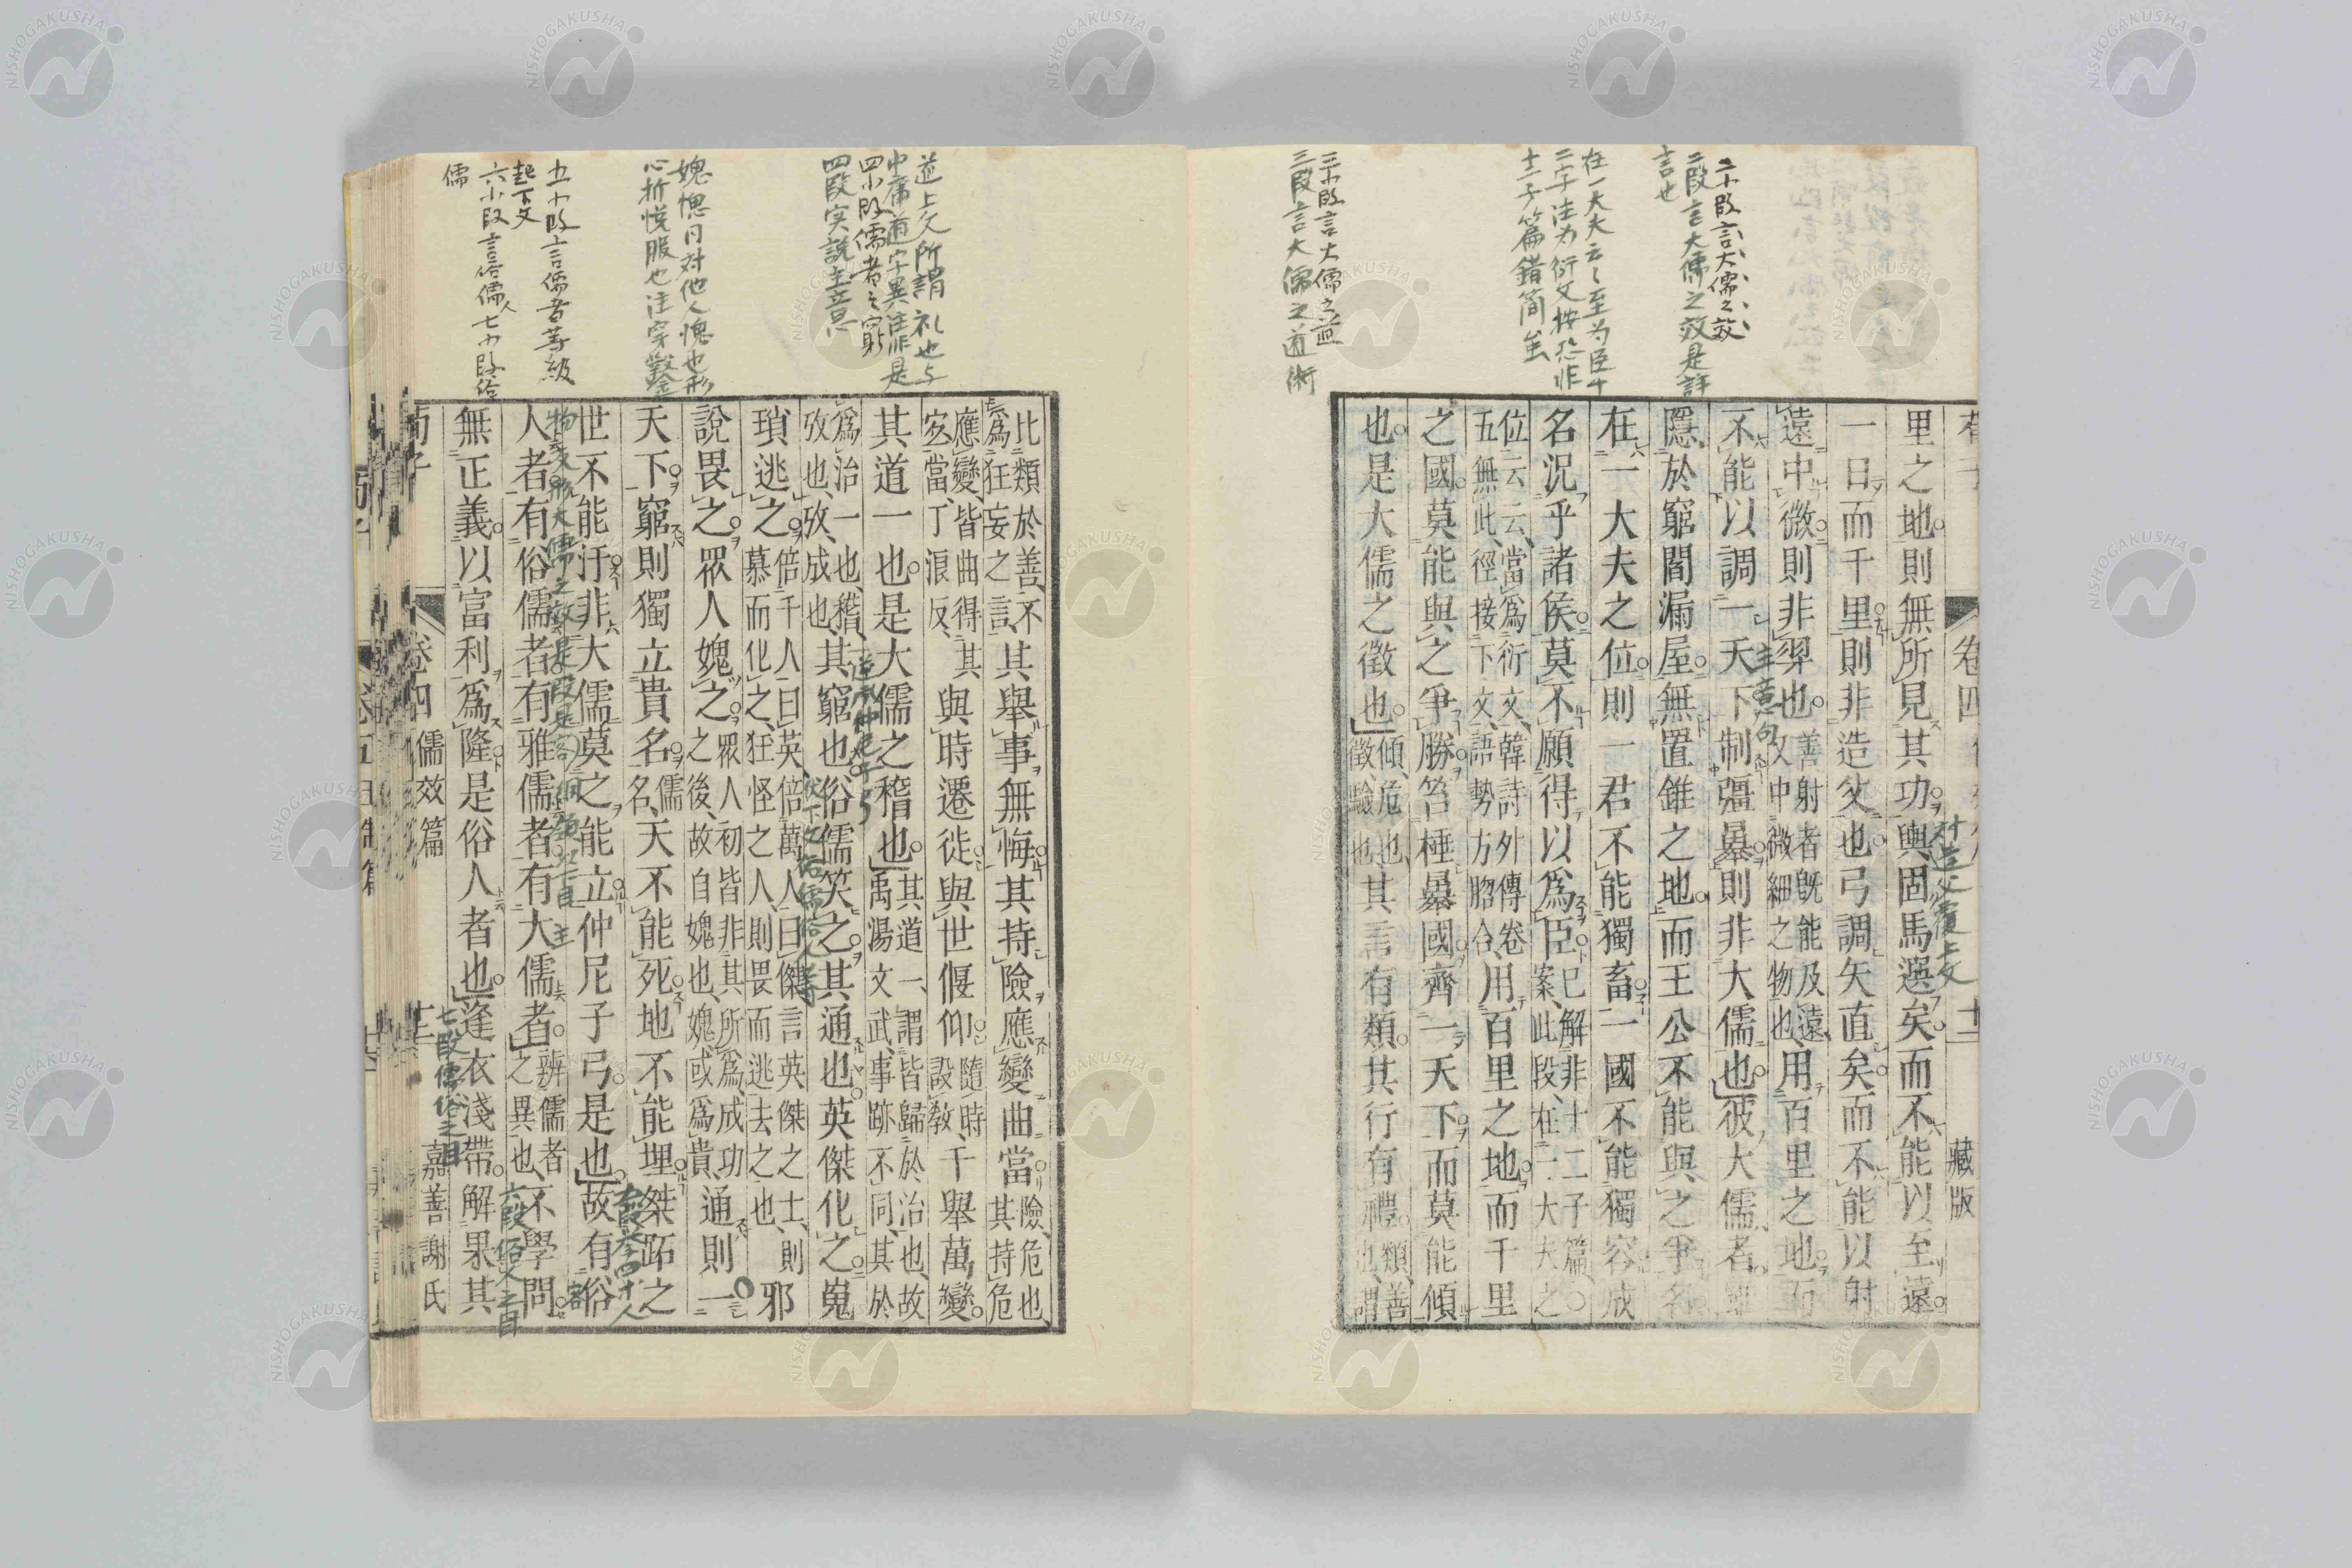 二小段言大儒之效
二段言大儒之效是詳
言也
在一大夫云々至为臣十
二字注为衍文按恐非
十二子篇錯简
三小段言大儒之
三段言大儒之道術
荀子 卷四 十二 藏版
里之地則無所見其功輿固馬選矣而不能以至遠
対造父覆上文
一日而千里則非造父也弓調矢直矣而不能以射
遠中微則非羿也善射者既能及遠又中微細之物也用百里之地而
不能以調一天下制彊暴則非大儒也彼大儒者
主意句
隱於窮閻漏屋無置錐之地而王公不能與之爭名
在一大夫之位則一君不能獨畜一國不能獨容成
名況乎諸侯莫不願得以爲臣已解非十二子篇○案此段在一大夫之
位云云當爲衍文韓詩外傳卷五無此徑接下文語勢方脗合用百里之地而千里
之國莫能與之爭勝笞棰暴國齊一天下而莫能傾
也是大儒之徵也傾危也徵驗也其言有類其行有禮類善也謂
道上文所謂礼也与
中庸道字異注非是
四小段儒者之窮
四段实説主意
媿愧同対他人愧也形
心折悦服也注穿鑿
五小段言儒者等級
起下文
六小段言俗人七小段俗
儒
比類於善不爲狂妄之言其舉事無悔其持險應變曲當險危也其持危
應變皆曲得宐當丁浪反其與時遷徙與世偃仰隨時設敎千舉萬變
其道一也是大儒之稽也其道一謂皆歸於治也故禹湯文武事跡不同其於
爲治一也稽攷也攷成也其窮也俗儒笑之其通也英傑化之嵬
瑣逃之倍千人曰英倍萬人曰傑言英傑之士則慕而化之狂怪之人則畏而逃去之也邪
說畏之眾人媿之眾人初皆非其所爲成功之後故自媿也媿或爲貴通則一
天下窮則獨立貴名儒名天不能死地不能埋桀跖之
世不能汙非大儒莫之能立仲尼子弓是也故有俗
人者有俗儒者有雅儒者有大儒者辨儒者之異也不學問
無正義以富利爲隆是俗人者也逢衣淺帶解果其
六段俗人之目
七段儒俗之目
荀子 卷四 儒效篇 十三 嘉善謝氏